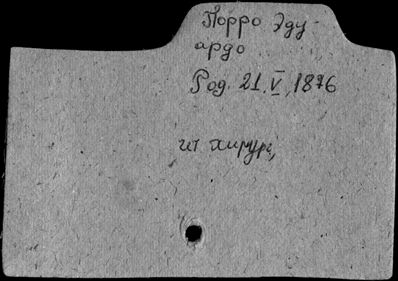 Порро Эду-
ардо
Род. 21.V.1876
ит хирург,